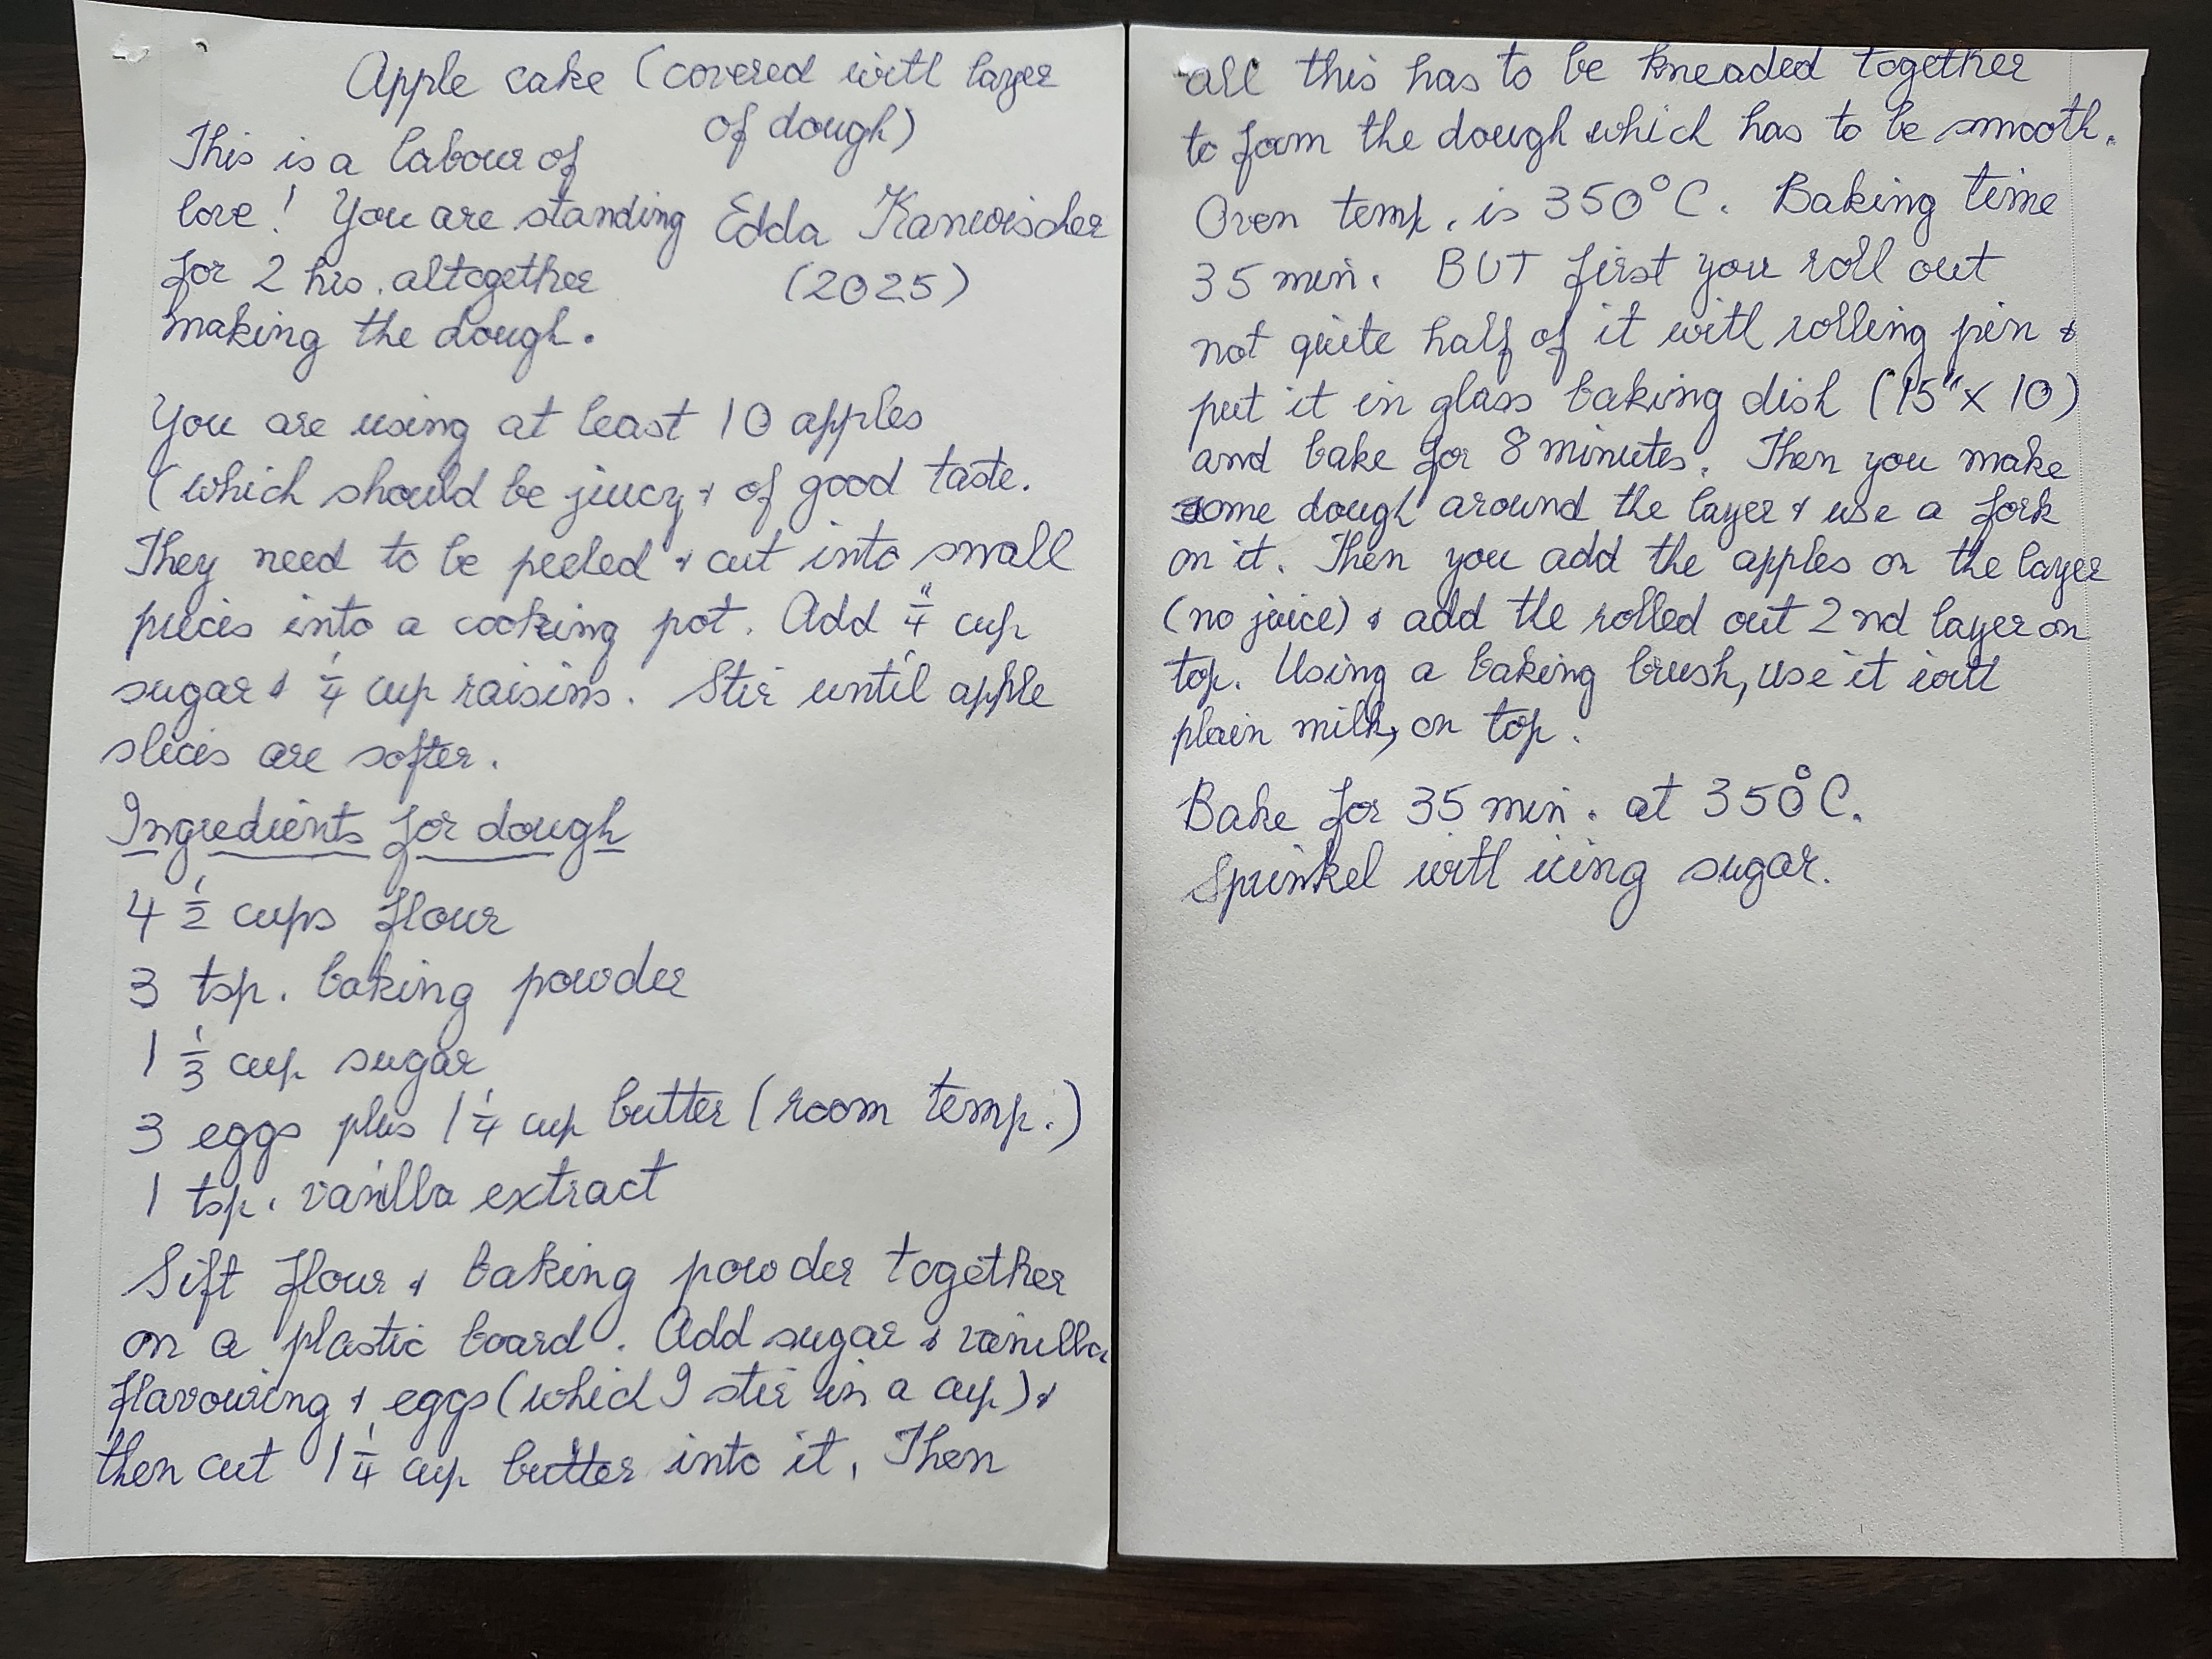 Apple cake (covered with layer
of dough)
This is a labour of
love! You are standing
for 2 hrs. altogether
making the dough.
Edda Kanwischer
(2025)
You are using at least 10 apples
(which should be juicy & of good taste.
They need to be peeled & cut into small
pieces into a cooking pot. Add cup
sugar & 1/4 cup raisins. Stir until apple
slices are softer.
Ingredients for dough
4 1/2 cups flour
3 tsp. baking powder
1 1/3 cup sugar
3 eggs plus 1 1/4 cup butter (room temp.)
1 tsp. vanilla extract
Sift flour & baking powder together
on a plastic board. Add sugar & vanilla
flavouring & eggs (which I stir in a cup) &
then cut 1 1/4 cup butter into it. Then
all this has to be kneaded together
to form the dough which has to be smooth.
Oven temp. is 350°C. Baking time
35 min. BUT first you roll out
not quite half of it with rolling pin &
put it in glass baking dish (15" x 10)
and bake for 8 minutes. Then you make
some dough around the layer & use a fork
on it. Then you add the apples on the layer
(no juice) & add the rolled out 2nd layer on
top. Using a baking brush, use it with
plain milk, on top.
Bake for 35 min. at 350°C.
Sprinkel with icing sugar.